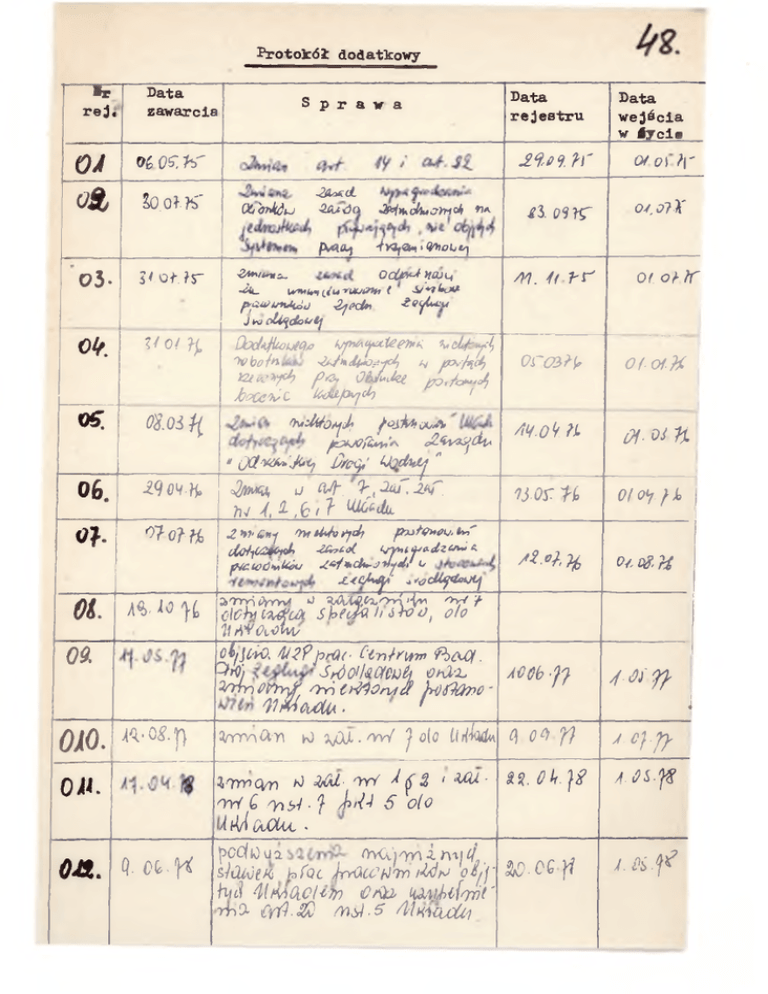 48.
Protokół dodatkowy
Nr rej. Data zawarcia Sprawa Data rejestru Data wejścia w życie
01 06.05.75 Zmian art. 14 i art. 32 29.09.75 01.05.75
02 30.07.75 Zmiana zasad wynagradzania
członków załóg zatrudnionych na
jednostkach pływających, nie objętych
systemem pracy trzyzmianowej
03.09.75 01.07.75
03. 31.07.75 zmiana zasad odpłatności
za umundurowanie służbowe
pracowników Zjedn. Żeglugi
Śródlądowej
11.11.75 01.07.75
04. 31.01.76 Dodatkowego wynagrodzenia niektórych
robotników zatrudnionych w portach
rzecznych przy
05.03.76 01.01.76
05. 08.03.76 Zmian niektórych postanowień Układu
dotyczących powołania Zarządu
"Odrzańskiej Drogi Wodnej"
14.04.76 01.03.76
06. 29.04.76 Zmian w art 7, zał.
nr 1, 2, 6 i 7 Układu
13.05.76 01.04.76
07. 07.07.76 zmiany niektórych postanowień
dotyczących zasad wynagradzania
pracowników zatrudnionych w stoczniach
remontowych żeglugi śródlądowej
12.07.76 01.08.76
08. 19.10.76 zmiany w załączniku nr 7
dotyczącą specjalistów, do
Układu
09. 17.05.77 objęcia UZP prac. Centrum Bad.
Żeglugi Śródlądowej oraz
zmiany niektórych postano-
wień Układu.
10.06.77 1.05.77
010. 12.08.77 zmian w zał. nr 7 do Układu 9.09.77 1.07.77
011. 17.04.78 zmian w zał. nr 1 § 2 i zał.
nr 6 ust. 7 pkt 5 do
Układu.
22.04.78 1.05.78
012. 9.06.78 podwyższenia najniższych
stawek płac pracowników obję-
tych Układem oraz uzupełnie-
nia art. 20 ust. 5 Układu
20.06.78